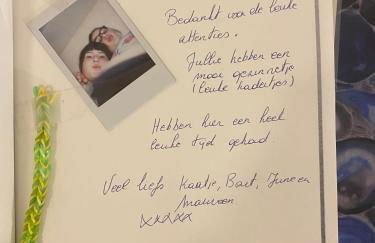 Bedankt voor de leuke
attenties.
Jullie hebben een
mooi gezinnetje
(leuke kadertjes)
Hebben hier een heel
leuke tijd gehad.
Veel liefs Kaatje, Bart, June en
xxxxx